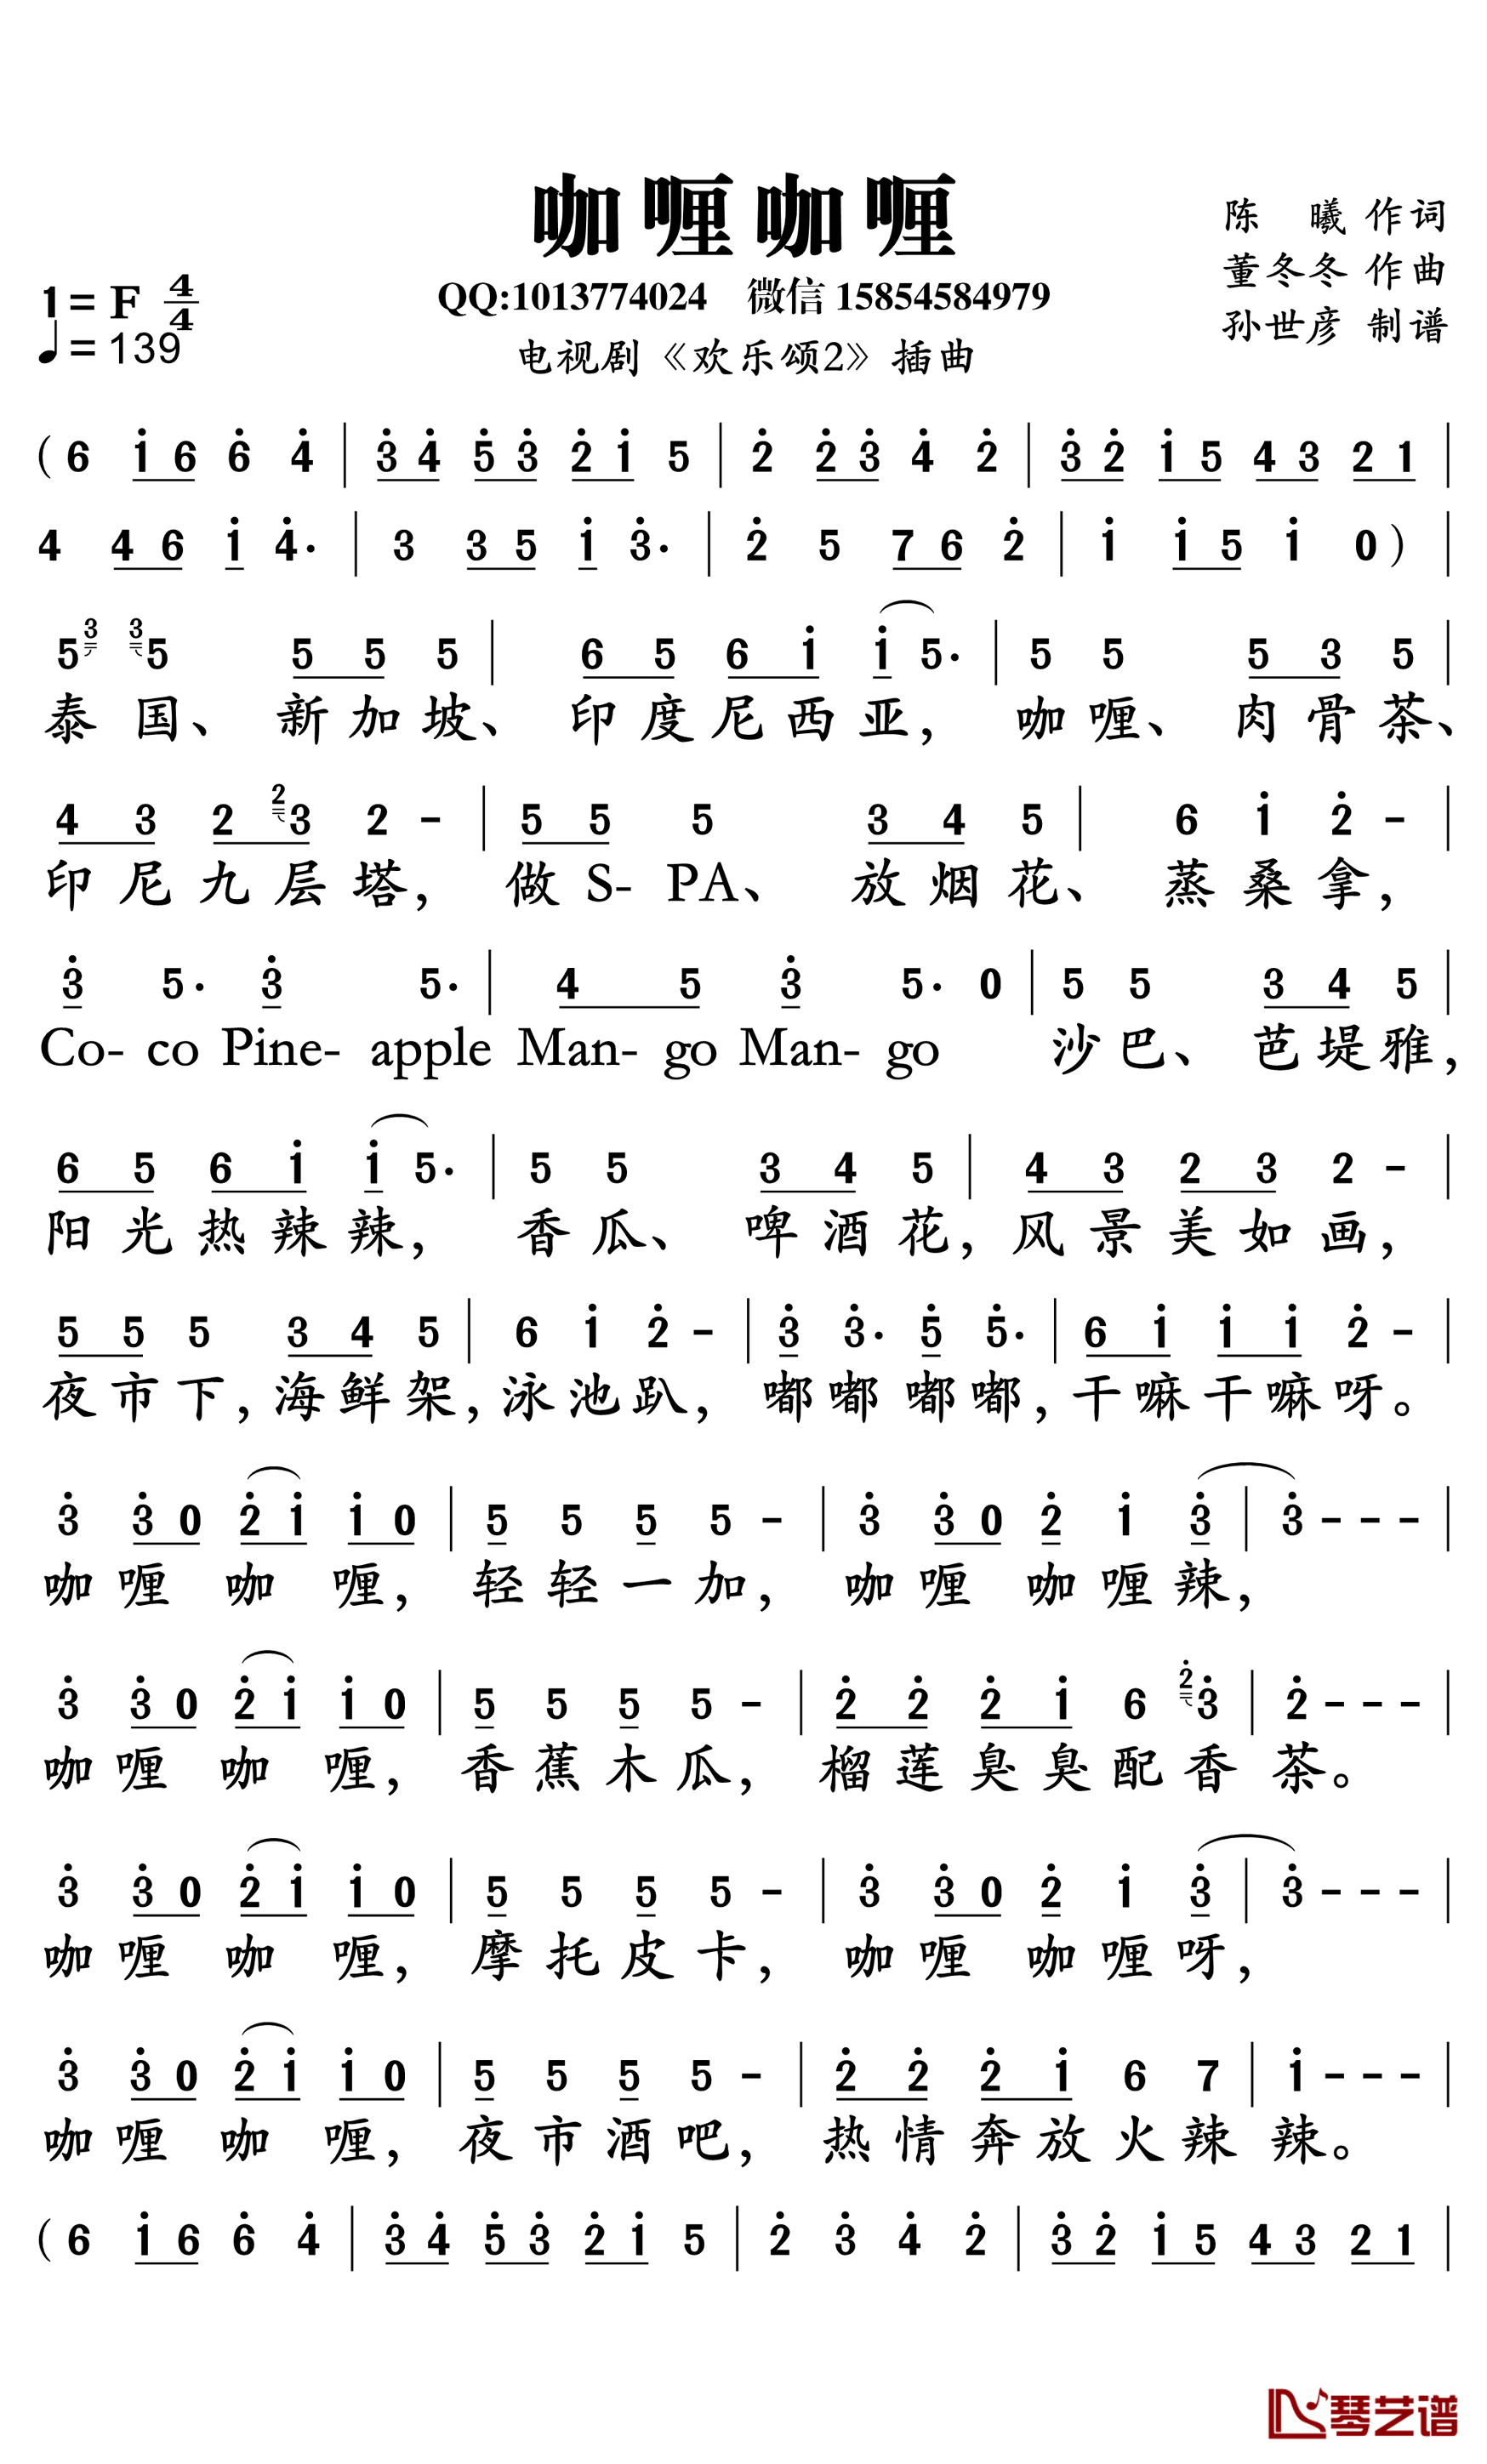 咖喱咖喱
陈 曦 作词
董冬冬 作曲
孙世彦 制谱
1=F 4/4
♩=139
QQ:1013774024 微信 15854584979
电视剧《欢乐颂2》插曲
( 6 i̇ 6 6̇ 4̇ | 3̇ 4̇ 5̇ 3̇ 2̇ i̇ 5 | 2̇ 2̇ 3̇ 4̇ 2̇ | 3̇ 2̇ i̇ 5 4 3 2 1 |
4 4 6 i̇ 4̇· | 3 3 5 i̇ 3̇· | 2̇ 5 7 6 2̇ | i̇ i̇ 5 i̇ 0 ) |
5 3 3 5 5 5 5 | 6 5 6 i̇ i̇ 5· | 5 5 5 3 5 |
泰国、 新加坡、 印度尼西亚, 咖喱、 肉骨茶、
4 3 2 2 3 2 - | 5 5 5 3 4 5 | 6 i̇ 2̇ - |
印尼九层塔, 做S-PA、 放烟花、 蒸桑拿,
3̇ 5· 3̇ 5· | 4 5 3̇ 5· 0 | 5 5 3 4 5 |
Co- co Pine- apple Man- go Man- go 沙巴、 芭堤雅,
6 5 6 i̇ i̇ 5· | 5 5 3 4 5 | 4 3 2 3 2 - |
阳光热辣辣, 香瓜、 啤酒花, 风景美如画,
5 5 5 3 4 5 | 6 i̇ 2̇ - | 3̇ 3̇· 5̇ 5̇· | 6 i̇ i̇ i̇ 2̇ - |
夜市下, 海鲜架, 泳池趴, 嘟嘟嘟嘟, 干嘛干嘛呀。
3̇ 3̇ 0 2̇ i̇ i̇ 0 | 5 5 5 5 - | 3̇ 3̇ 0 2̇ i̇ 3̇ | 3̇ - - - |
咖喱 咖 喱, 轻轻一加, 咖喱 咖喱辣,
3̇ 3̇ 0 2̇ i̇ i̇ 0 | 5 5 5 5 - | 2̇ 2̇ 2̇ i̇ 6 2̇ 3̇ | 2̇ - - - |
咖喱 咖 喱, 香蕉木瓜, 榴莲臭臭配香 茶。
3̇ 3̇ 0 2̇ i̇ i̇ 0 | 5 5 5 5 - | 3̇ 3̇ 0 2̇ i̇ 3̇ | 3̇ - - - |
咖喱 咖 喱, 摩托皮卡, 咖喱 咖喱呀,
3̇ 3̇ 0 2̇ i̇ i̇ 0 | 5 5 5 5 - | 2̇ 2̇ 2̇ i̇ 6 7 | i̇ - - - |
咖喱 咖 喱, 夜市酒吧, 热情奔放火辣 辣。
( 6 i̇ 6 6̇ 4̇ | 3̇ 4̇ 5̇ 3̇ 2̇ i̇ 5 | 2̇ 3̇ 4̇ 2̇ | 3̇ 2̇ i̇ 5 4 3 2 1 |
琴艺谱